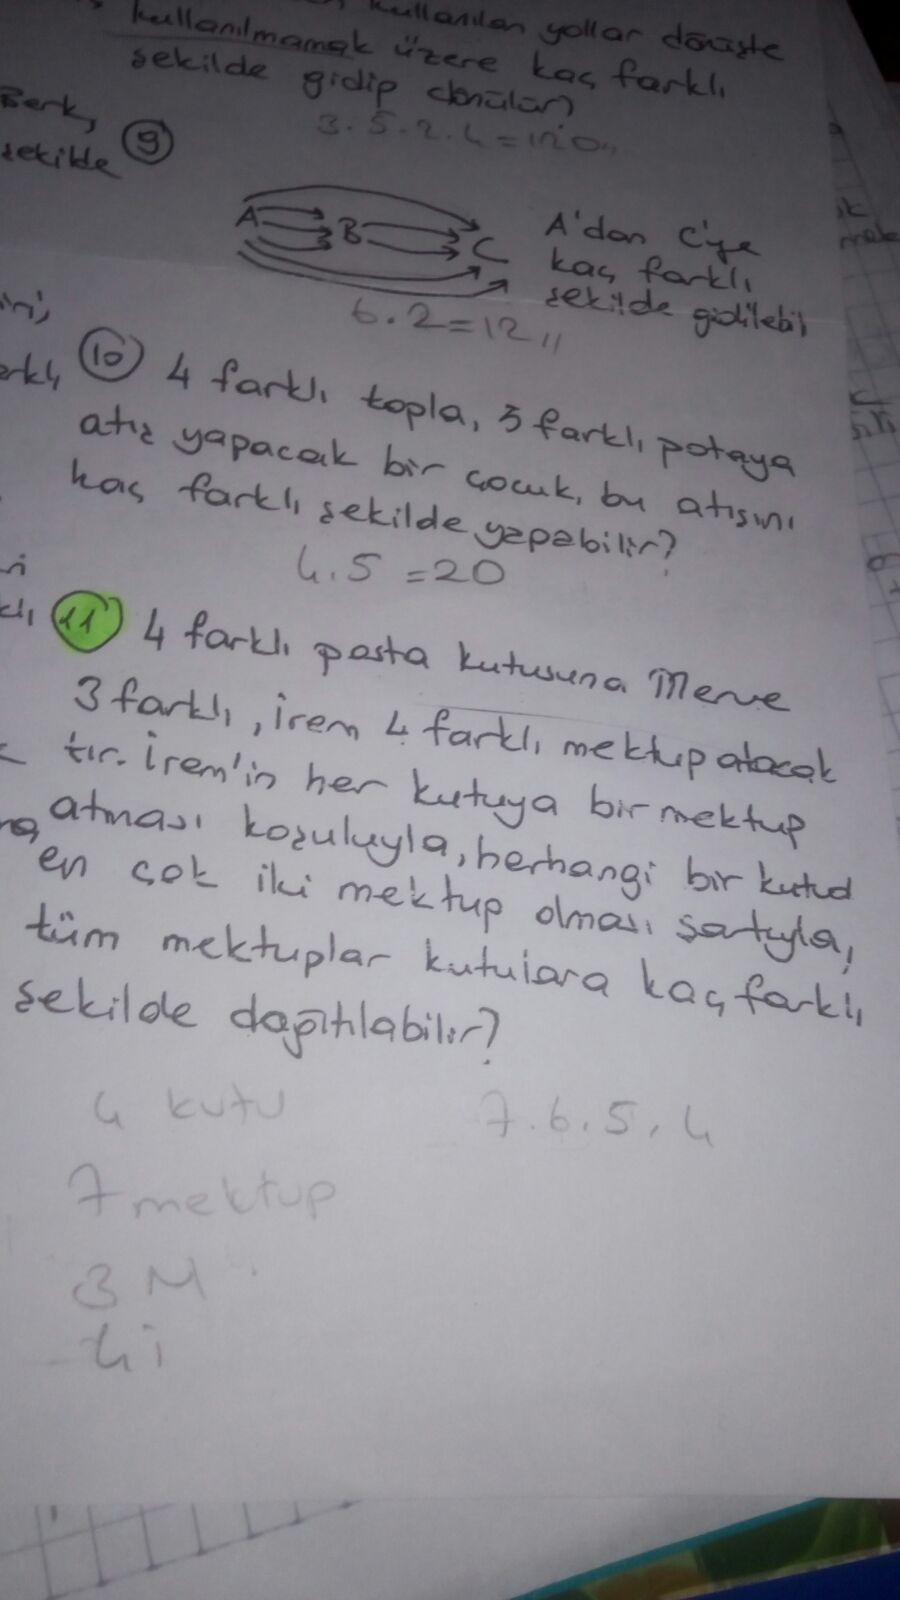 kullanılan yollar dönüşte
kullanılmamak üzere kaç farklı
şekilde gidip dönülür?
3.5.2.4=120,,
Berk,
şekilde
9
A B C
A'dan C'ye
kaç farklı
şekilde gidilebil
6.2=12,,
10 4 farklı topla, 5 farklı potaya
atış yapacak bir çocuk, bu atışını
kaç farklı şekilde yapabilir?
4.5=20
11 4 farklı posta kutusuna Merve
3 farklı, irem 4 farklı mektup atacak
tır. İrem'in her kutuya bir mektup
atması koşuluyla, herhangi bir kutud
en çok iki mektup olması şartıyla,
tüm mektuplar kutulara kaç farklı
şekilde dağıtılabilir?
4 kutu
7.6.5.4
7 mektup
3 M
4 i